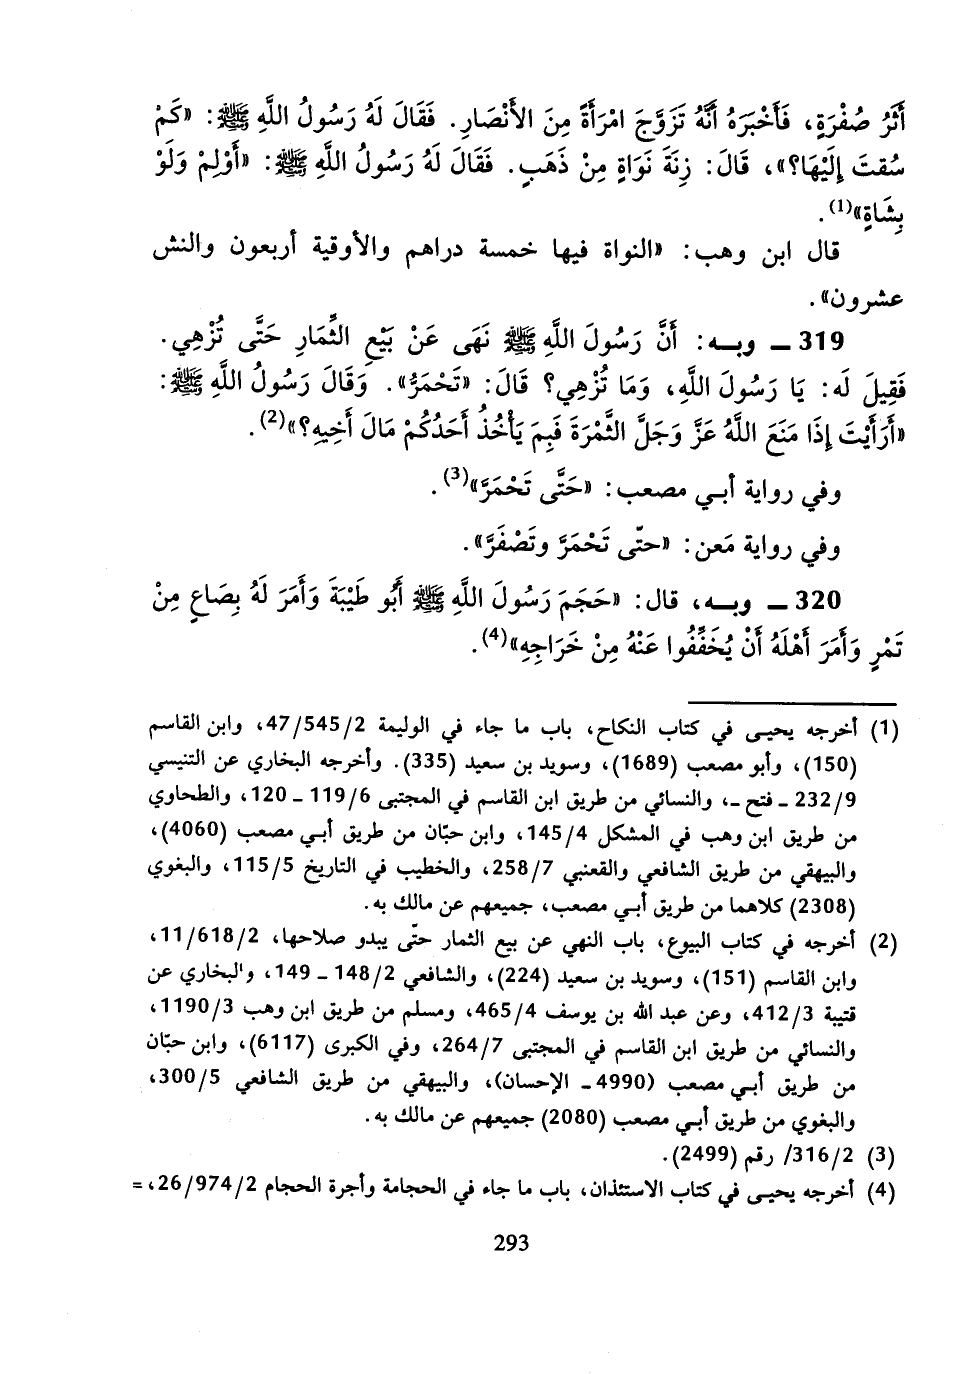 أَثَرُ صُفْرَةٍ، فَأَخْبَرَهُ أَنَّهُ تَزَوَّجَ امْرَأَةً مِنَ الأَنْصَارِ. فَقَالَ لَهُ رَسُولُ اللَّهِ ﷺ: «كَمْ
سُقتَ إِلَيْهَا؟»، قَالَ: زِنَةَ نَوَاةٍ مِنْ ذَهَبٍ. فَقَالَ لَهُ رَسُولُ اللَّهِ ﷺ: «أَوْلِمْ وَلَوْ
بِشَاةٍ»(1).
قال ابن وهب: «النواة فيها خمسة دراهم والأوقية أربعون والنش
عشرون».
319 ـ وبـه: أَنَّ رَسُولَ اللَّهِ ﷺ نَهَى عَنْ بَيْعِ الثِّمَارِ حَتَّى تُزْهِي.
فَقِيلَ لَه: يَا رَسُولَ اللَّهِ، وَمَا تُزْهِي؟ قَالَ: «تَحْمَرُّ». وَقَالَ رَسُولُ اللَّهِ ﷺ:
«أَرَأَيْتَ إِذَا مَنَعَ اللَّهُ عَزَّ وَجَلَّ الثَّمْرَةَ فَبِمَ يَأْخُذُ أَحَدُكُمْ مَالَ أَخِيهِ؟»(2).
وفي رواية أبـي مصعب: «حَتَّى تَحْمَرَّ»(3).
وفي رواية مَعن: «حتّى تَحْمَرَّ وتَصْفَرَّ».
320 ـ وبـه، قال: «حَجَمَ رَسُولَ اللَّهِ ﷺ أَبُو طَيْبَةَ وَأَمَرَ لَهُ بِصَاعٍ مِنْ
تَمْرٍ وَأَمَرَ أَهْلَهُ أَنْ يُخَفِّفُوا عَنْهُ مِنْ خَرَاجِهِ»(4).
(1) أخرجه يحيـى في كتاب النكاح، باب ما جاء في الوليمة 47/545/2، وابن القاسم
(150)، وأبو مصعب (1689)، وسويد بن سعيد (335). وأخرجه البخاري عن التنيسي
232/9 ـ فتح ـ، والنسائي من طريق ابن القاسم في المجتبى 119/6 ـ 120، والطحاوي
من طريق ابن وهب في المشكل 145/4، وابن حبّان من طريق أبـي مصعب (4060)،
والبيهقي من طريق الشافعي والقعنبي 258/7، والخطيب في التاريخ 115/5، والبغوي
(2308) كلاهما من طريق أبـي مصعب، جميعهم عن مالك به.
(2) أخرجه في كتاب البيوع، باب النهي عن بيع الثمار حتّى يبدو صلاحها، 11/618/2،
وابن القاسم (151)، وسويد بن سعيد (224)، والشافعي 148/2 ـ 149، والبخاري عن
قتيبة 412/3، وعن عبد الله بن يوسف 465/4، ومسلم من طريق ابن وهب 1190/3،
والنسائي من طريق ابن القاسم في المجتبى 264/7، وفي الكبرى (6117)، وابن حبّان
من طريق أبـي مصعب (4990ـ الإحسان)، والبيهقي من طريق الشافعي 300/5،
والبغوي من طريق أبـي مصعب (2080) جميعهم عن مالك به.
(3) 316/2/ رقم (2499).
(4) أخرجه يحيـى في كتاب الاستئذان، باب ما جاء في الحجامة وأجرة الحجام 26/974/2، =
293